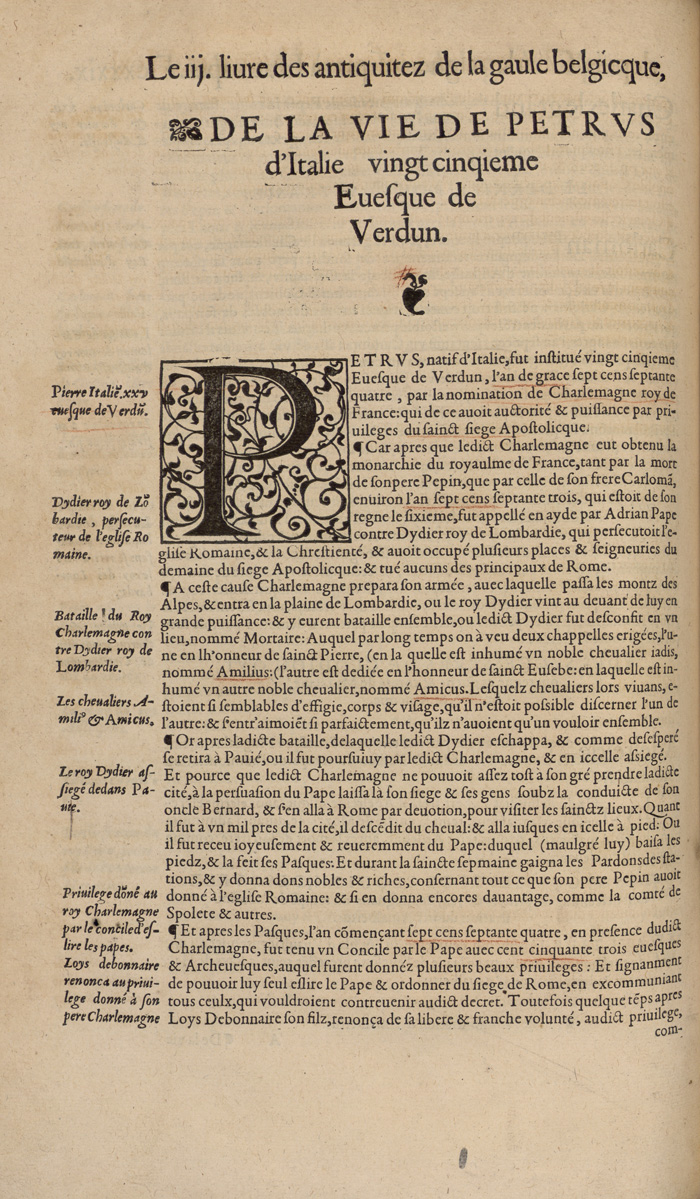 Le iij. liure des antiquitez de la gaule belgicque,
DE LA VIE DE PETRVS
d'Italie vingt cinqieme
Euesque de
Verdun.
PETRVS, natif d'Italie, fut institué vingt cinqieme
Euesque de Verdun, l'an de grace sept cens septante
quatre, par la nomination de Charlemagne roy de
France: qui de ce auoit auctorité & puissance par pri-
uileges du sainct siege Apostolicque.
¶ Car apres que ledict Charlemagne eut obtenu la
monarchie du royaulme de France, tant par la mort
de sonpere Pepin, que par celle de son frere Carlomã,
enuiron l'an sept cens septante trois, qui estoit de son
regne le sixieme, fut appellé en ayde par Adrian Pape
contre Dydier roy de Lombardie, qui persecutoit l'e-
glise Romaine, & la Chrestienté, & auoit occupé plusieurs places & seigneuries du
demaine du siege Apostolicque: & tué aucuns des principaux de Rome.
¶ A ceste cause Charlemagne prepara son armée, auec laquelle passa les montz des
Alpes, & entra en la plaine de Lombardie, ou le roy Dydier vint au deuant de luy en
grande puissance: & y eurent bataille ensemble, ou ledict Dydier fut desconfit en vn
lieu, nommé Mortaire: Auquel par long temps on à veu deux chappelles erigées, l'u-
ne en lh'onneur de sainct Pierre, (en la quelle est inhumé vn noble cheualier iadis,
nommé Amilius: (l'autre est dediée en l'honneur de sainct Eusebe: en laquelle est in-
humé vn autre noble cheualier, nommé Amicus. Lesquelz cheualiers lors viuans, e-
stoient si semblables d'effigie, corps & visage, qu'il n'estoit possible discerner l'un de
l'autre: & s'entr'aimoiẽt si parfaictement, qu'ilz n'auoient qu'un vouloir ensemble.
¶ Or apres ladicte bataille, delaquelle ledict Dydier eschappa, & comme desesperé
se retira à Pauié, ou il fut poursuiuy par ledict Charlemagne, & en iccelle assiegé.
Et pource que ledict Charlemagne ne pouuoit assez tost à son gré prendre ladicte
cité, à la persuasion du Pape laissa là son siege & ses gens soubz la conduicte de son
oncle Bernard, & s'en alla à Rome par deuotion, pour visiter les sainctz lieux. Quant
il fut à vn mil pres de la cité, il descẽdit du cheual: & alla iusques en icelle à pied: Ou
il fut receu ioyeusement & reueremment du Pape: duquel (maulgré luy) baisa les
piedz, & la feit ses Pasques: Et durant la saincte sepmaine gaigna les Pardons des sta-
tions, & y donna dons nobles & riches, confernant tout ce que son pere Pepin auoit
donné à l'eglise Romaine: & si en donna encores dauantage, comme la comté de
Spolete & autres.
¶ Et apres les Pasques, l'an cõmençant sept cens septante quatre, en presence dudict
Charlemagne, fut tenu vn Concile par le Pape auec cent cinquante trois euesques
& Archeuesques, auquel furent donnéz plusieurs beaux priuileges: Et signanment
de pouuoir luy seul eslire le Pape & ordonner du siege de Rome, en excommuniant
tous ceulx, qui vouldroient contreuenir audict decret. Toutefois quelque tẽps apres
Loys Debonnaire son filz, renonça de sa libere & franche volunté, audict priuilege,
com-
Pierre Italiẽ. xxv
euesque de Verdũ.
Dydier roy de Lõ
bardie, persecu-
teur de l'eglise Ro
maine.
Bataille du Roy
Charlemagne con
tre Dydier roy de
Lombardie.
Les cheualiers A-
milius & Amicus.
Le roy Dydier as-
siegé dedans Pa-
uie.
Priuilege dõné au
roy Charlemagne
par le concile d'es-
lire les papes.
Loys debonnaire
renonca au priui-
lege donné à son
pere Charlemagne